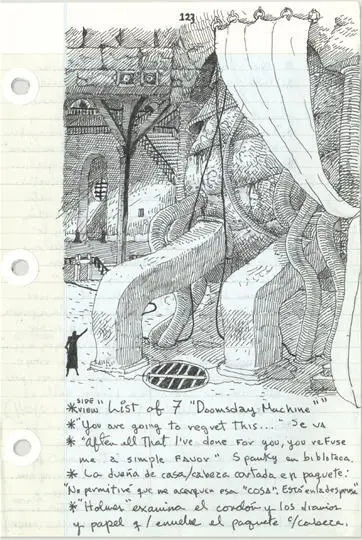 123
* SIDE VIEW" List of 7 "Doomsday Machine"
* "You are going to regret this..." Se va
* "After all that I've done for you, you refuse
me a simple favor" Spanky en biblioteca.
* La dueña de casa/cabeza cortada en paquete:
"No permitiré que me acerquen esa "cosa". Está en la despensa"
* "Holmes examina el cordón y los diarios
y papel q/ envuelve el paquete c/cabeza.